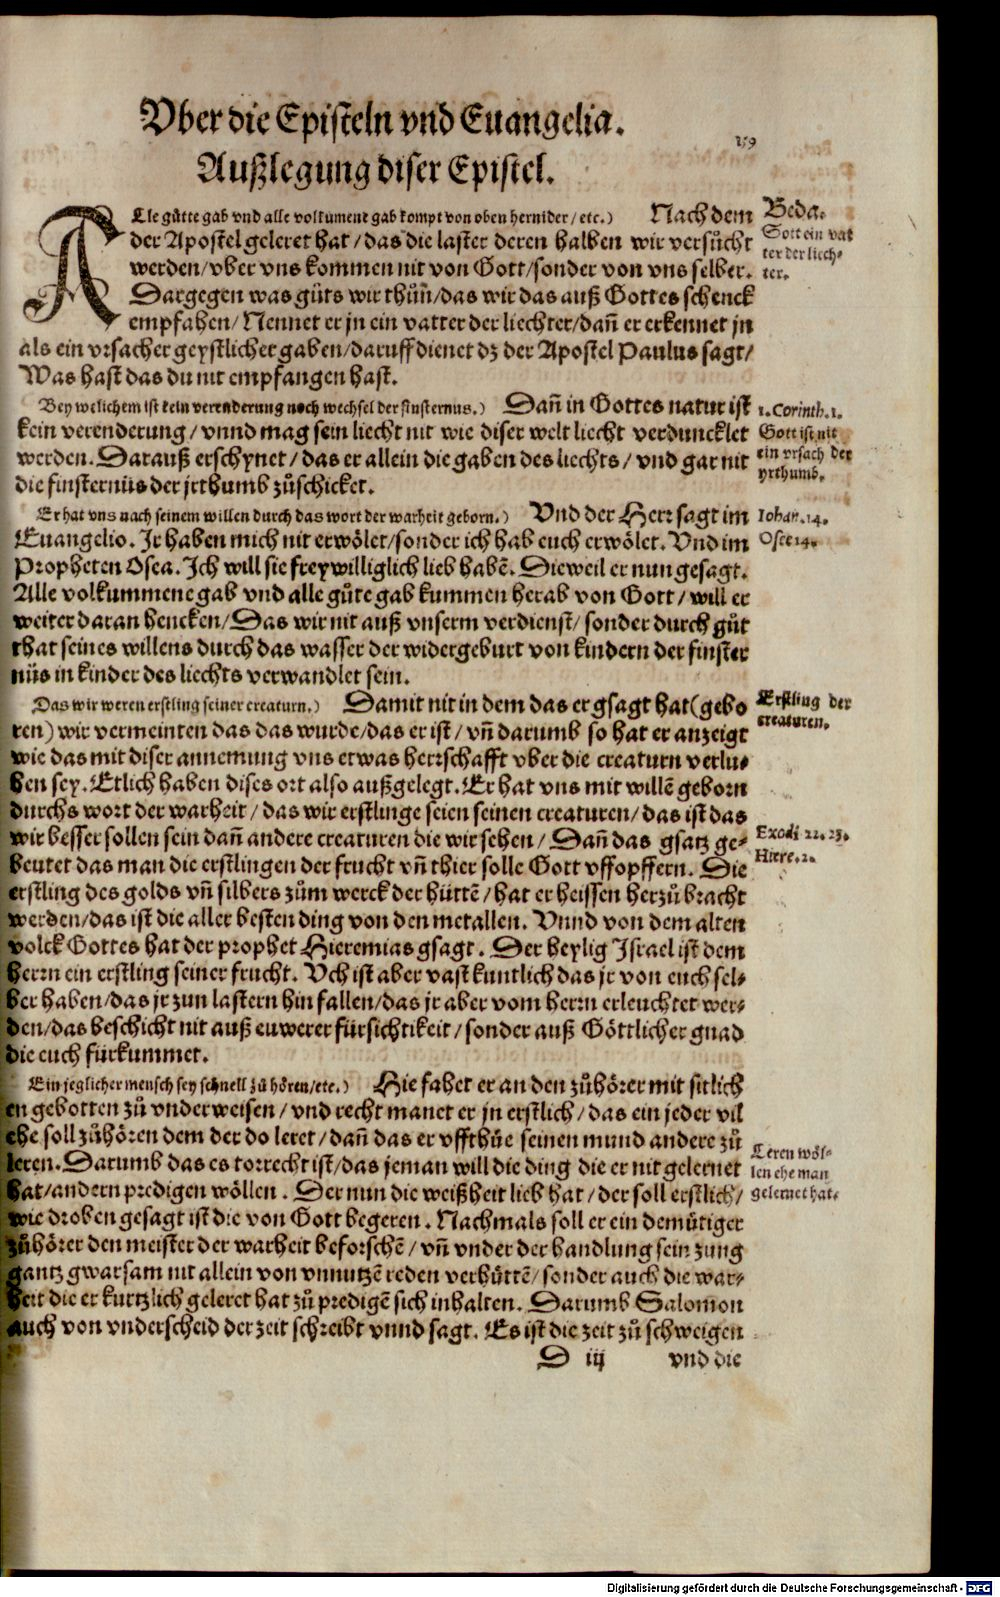 Vber die Episteln vnd Euangelia.
159
Außlegung diser Epistel.
ALle gůtte gab vnd alle volkumene gab kompt von oben hernider / etc.) Nach dem
der Apostel geleret hat / das die laster deren halben wir versůcht
werden / vber vns kommen nit von Gott / sonder von vns selber.
Dargegen was gůts wir thůñ / das wir das auß Gottes schenck
empfahen / Nennet er jn ein vatter der liechter / dañ er erkennet jn
als ein vrsacher geystlicher gaben / daruff dienet dz der Apostel Paulus sagt /
Was hast das du nit empfangen hast.
Bey welichem ist kein verenderung noch wechsel der finsternus.) Dañ in Gottes natur ist
kein verenderung / vnnd mag sein liecht nit wie diser welt liecht verduncklet
werden. Darauß erschynet / das er allein die gaben des liechts / vnd gar nit
die finsternüs der jrthumb zůschicket.
Er hat vns nach seinem willen durch das wort der warheit geborn.) Vnd der Herr sagt im
Euangelio. Ir haben mich nit erwölet / sonder ich hab euch erwölet. Vnd im
Propheten Osea. Ich will sie freywilliglich lieb habē. Dieweil er nun gesagt.
Alle volkummene gab vnd alle gůte gab kummen herab von Gott / will er
weiter daran hencken / Das wir nit auß vnserm verdienst / sonder durch gůt
that seines willens durch das wasser der widergeburt von kindern der finster
nüs in kinder des liechts verwandlet sein.
Das wir weren erstling seiner creaturn.) Damit nit in dem das er gsagt hat (gebo
ren) wir vermeinten das das wurde / das er ist / vñ darumb so hat er anzeigt
wie das mit diser annemung vns etwas herrschafft vber die creaturn verlu-
hen sey. Etlich haben dises ort also außgelegt. Er hat vns mit willē geborn
durchs wort der warheit / das wir erstlinge seien seinen creaturen / das ist das
wir besser sollen sein dañ andere creaturen die wir sehen / Dañ das gsatz ge-
beutet das man die erstlingen der frucht vñ thier solle Gott vffopffern. Die
erstling des golds vñ silbers zům werck der hüttē / hat er heissen herzů bracht
werden / das ist die aller besten ding von den metallen. Vnnd von dem alten
volck Gottes hat der prophet Hieremias gsagt. Der heylig Israel ist dem
herrn ein erstling seiner frucht. Vch ist aber vast kuntlich das jr von euch sel-
ber haben / das jr zun lastern hin fallen / das jr aber vom herrn erleuchtet wer-
den / das beschicht nit auß euwerer fürsichtikeit / sonder auß Göttlicher gnad
die euch fürkummet.
Ein jeglicher mensch sey schnell zů hören / etc.) Hie fahet er an den zůhörer mit sitlich
en gebotten zů vnderweisen / vnd recht manet er jn erstlich / das ein jeder vil
ehe soll zůhören dem der do leret / dañ das er vffthüe seinen mund andere zů
leren. Darumb das es torrecht ist / das jeman will die ding die er nit gelernet
hat / andern predigen wöllen. Der nun die weißheit lieb hat / der soll erstlich /
wie droben gesagt ist die von Gott begeren. Nachmals soll er ein demütiger
zůhörer den meister der warheit beforschē / vñ vnder der handlung sein zung
gantz gwarsam nit allein von vnnutzē reden verhüttē / sonder auch die war-
heit die er kurtzlich geleret hat zů predigē sich inhalten. Darumb Salomon
auch von vnderscheid der zeit schreibt vnnd sagt. Es ist die zeit zů schweigen
D iij
vnd die
Beda.
Gott ein vat
ter der liech-
ter.
1. Corinth. 1.
Gott ist nit
ein vrsach der
yrthumb.
Iohan. 14.
Osee 14.
Erstling der
creaturen.
Exodi 22. 23.
Hiere. 2.
Leren wöl-
len ehe man
gelernet hat.
Digitalisierung gefördert durch die Deutsche Forschungsgemeinschaft - DFG